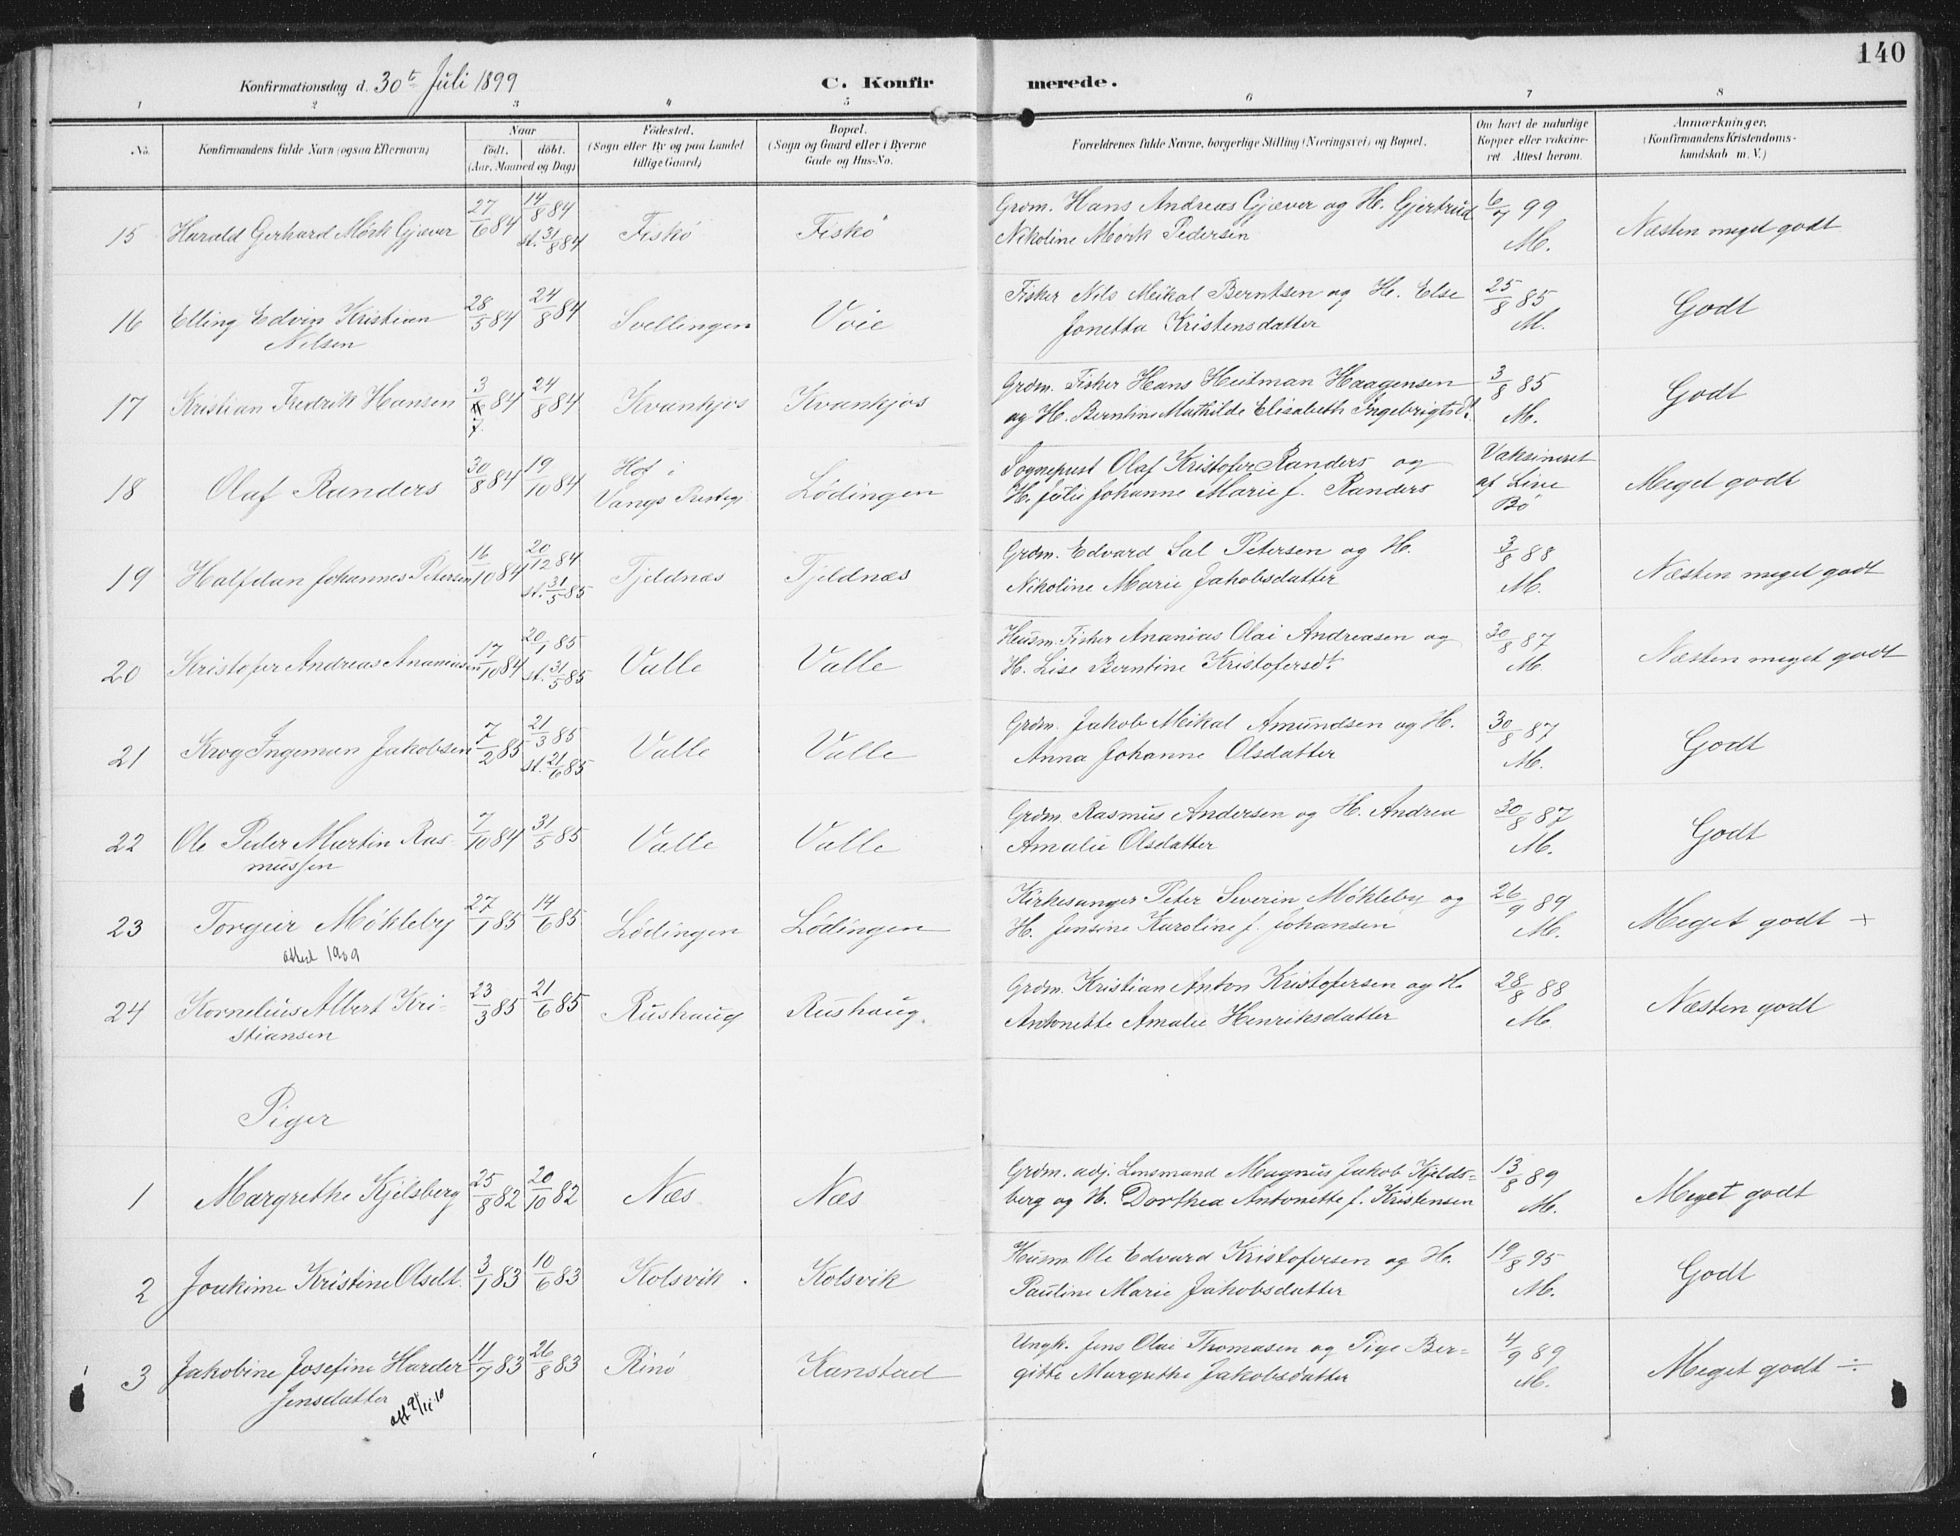 140
Konfirmationsdag d. 30te Juli 1899 C. Konfirmerede.
1 2 3 4 5 6 7 8
No. Konfirmandens fulde Navn (ogsaa Efternavn) Naar födt. döbt. (Aar, Maaned og Dag) Födested. (Sogn eller By og paa Landet tillige Gaard) Bopæl. (Sogn og Gaard eller i Byerne Gade og Hus-No. Forældrenes fulde Navne, borgerlige Stilling (Næringsvei) og Bopæl. Om havt de naturlige Kopper eller vakcineret Attest herom. Anmærkninger. (Konfirmandens Kristendomskundskab m. V.)
15 Harald Gerhard Mørk Gjæver 27/6 84 14/8 84 st. 31/8 84 Fiskø Fiskø Grdm. Hans Andreas Gjæver og H. Gjertrud
Nikoline Mørk Pedersen 6/7 99 M. Næsten meget godt
16 Elling Edvin Kristian
Nilsen 28/5 84 24/8 84 Svellingen Voie Fisker Nils Meikal Berntsen og H. Else
Jonetta Kristensdatter 25/8 85 M. Godt
17 Kristian Fredrik Hansen 3/7 84 24/8 84 Kvankjos Kvankjos Grdm. Fisker Hans Heitman Haagensen
og H. Berntine Mathilde Elisabeth Ingebrigtsdt. 3/8 85 M. Godt
18 Olaf Randers 30/8 84 19/10 84 Hof i
Vangs Prestegj. Lødingen Sogneprest Olaf Kristofer Randers og
H. Julie Johanne Marie f. Randers Vaksineret
af Live
Bø Meget godt
19 Halfdan Johannes Petersen 16/10 84 20/12 84 st. 31/5 85 Tjeldnæs Tjeldnæs Grdm. Edvard Sal Petersen og H.
Nikoline Marie Jakobsdatter 3/8 88 M. Næsten meget godt
20 Kristofer Andreas Ananiasen 17/10 84 20/1 85 st. 31/5 85 Valle Valle Husm. Fisker Ananias Olai Andreasen og
H. Lise Berntine Kristofersdt. 30/8 87 M. Næsten meget godt
21 Krog Ingeman Jakobsen 7/2 85 21/3 85 st. 21/6 85 Valle Valle Grdm. Jakob Meikal Amundsen og H.
Anna Johanne Olsdatter 30/8 87 M. Godt
22 Ole Peder Martin Ras-
mussen 7/10 84 31/5 85 Valle Valle Grdm. Rasmus Andersen og H. Andrea
Amalie Olsdatter 30/8 87 M. Godt
23 Torgeir Møkleby 27/1 85 14/6 85 Lødingen Lødingen Kirkesanger Peter Severin Møkleby og
H. Jensine Karoline f. Johansen 26/9 89 M. Meget godt +
attest 1909
24 Kornelius Albert Kri-
stiansen 23/3 85 21/6 85 Rushaug Rushaug. Grdm. Kristian Anton Kristofersen og H.
Antonette Amalie Henriksdatter 28/8 88 M. Næsten godt
Piger
1 Margrethe Kjelsberg 25/8 82 20/10 82 Næs Næs Grdm. adj. Lensmand Magnus Jakob Kjelds-
berg og H. Dorthea Antonette f. Kristensen 13/8 89 M. Meget godt
2 Joakime Kristine Olsdt. 3/1 83 10/6 83 Kolsvik Kolsvik Husm. Ole Edvard Kristofersen og H.
Pauline Marie Jakobsdatter 19/8 95 M. Godt
3 Jakobine Josefine Harder
Jensdatter 11/7 83 26/8 83 Rinø Kanstad Ungk. Jens Olai Thomasen og Pige Ber-
gitte Margrethe Jakobsdatter 4/9 89 M. Meget godt ÷
att 9/11 10